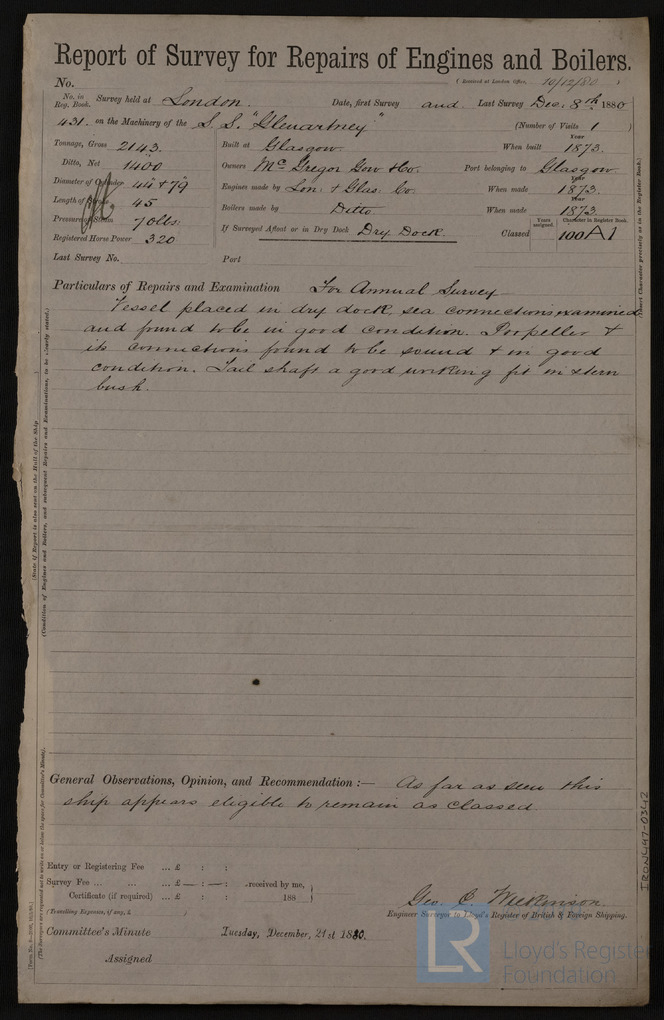 Report of Survey for Repairs of Engines and Boilers.
No. (Received at London Office, 10/12/80 )
No. in Reg. Book. Survey held at London. Date, first Survey and Last Survey Dec. 8th 1880
431. on the Machinery of the S.S. "Glenartney" (Number of Visits 1 )
Tonnage, Gross 2143. Built at Glasgow. When built Year 1873.
Ditto, Net 1400 Owners McGregor Gow & Co. Port belonging to Glasgow
Diameter of Cylinder 44" + 79" Engines made by Lon: & Glas: Co. When made Year 1873.
Length of Stroke 45 Boilers made by Ditto When made Year 1873
Pressure of Steam 70 lbs. If Surveyed Afloat or in Dry Dock Dry Dock. Classed Years assigned. Character in Register Book. 100A1
Registered Horse Power 320
Last Survey No. Port
Particulars of Repairs and Examination For Annual Survey
Vessel placed in dry dock, sea connections examined
and found to be in good condition. Propeller &
its connections found to be sound & in good
condition. Tail shaft a good working fit in stern
bush.
(State if Report is also sent on the Hull of the Ship
(Condition of Engines and Boilers, and subsequent Repairs and Examinations, to be clearly stated.)
Insert Character precisely as in the Register Book.)
General Observations, Opinion, and Recommendation :— As far as seen this
ship appears eligible to remain as classed.
Entry or Registering Fee ... £ : :
Survey Fee ... ... ... £ — : — : received by me,
Certificate (if required) ... £ : : 188
(Travelling Expenses, if any, £
Geo. C. Wilkinson.
Engineer Surveyor to Lloyd's Register of British & Foreign Shipping.
Committee's Minute Tuesday, December, 21st 1880.
Assigned
IRON497-0342
LR
Lloyd's Register
Foundation